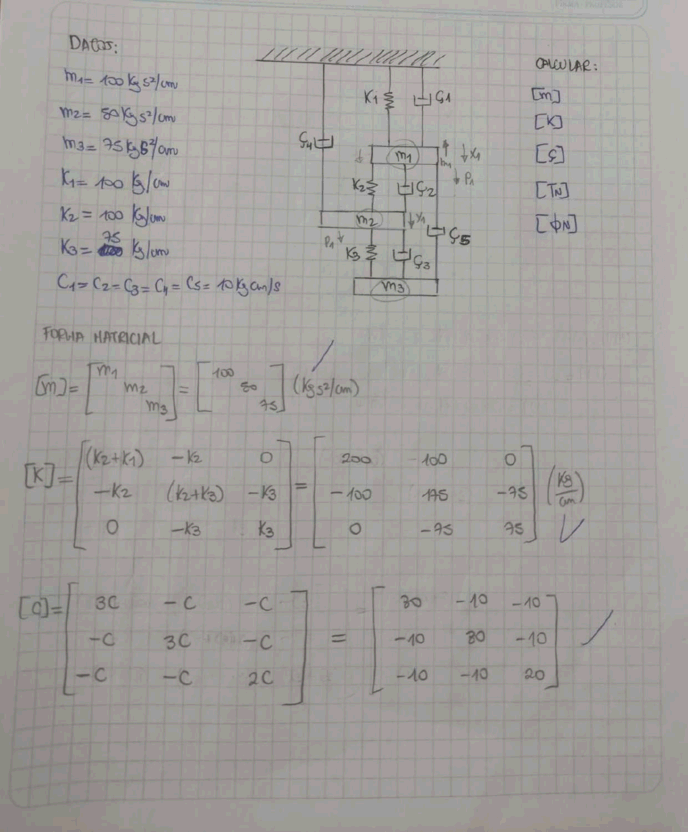 DATOS:
m1= 100 kg s²/cm
m2= 80 kg s²/cm
m3= 75 kg s²/cm
K1= 100 kg/cm
K2= 100 kg/cm
K3= 75 kg/cm
C1= C2= C3= C4= C5= 10 kg cm/s
K1
C1
C4
m1
X1
P1
K2
C2
m2
X1
P1
K3
C3
C5
m3
CALCULAR:
[m]
[K]
[C]
[TN]
[ΦN]
FORMA MATRICIAL
[m]= [m1 m2 m3] = [100 80 75] (kg s²/cm)
[K]= [(K2+K1) -K2 0
-K2 (K2+K3) -K3
0 -K3 K3] = [200 -100 0
-100 175 -75
0 -75 75] (kg/cm)
[C]= [3C -C -C
-C 3C -C
-C -C 2C] = [30 -10 -10
-10 30 -10
-10 -10 20]